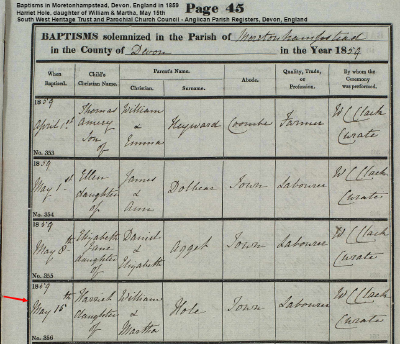 Baptisms in Moretonhampstead, Devon, England in 1859
Harriet Hole, daughter of William & Martha, May 15th
South West Heritage Trust and Parochial Church Council - Anglican Parish Registers, Devon, England
Page 45
BAPTISMS solemnized in the Parish of Moretonhampstead
in the County of Devon in the Year 1859
When Baptized. Child's Christian Name. Parent's Name. Christian. Surname. Abode. Quality, Trade, or Profession. By whom the Ceremony was performed.
1859 April 1st No. 353 Thomas Amery Son of William & Emma Heyward Coombe Farmer W C Clack Curate
1859 May 1st No. 354 Ellen daughter of James & Ann Dolbear Town Labourer W C Clack Curate
1859 May 8th No. 355 Elizabeth Jane daughter of Daniel & Elizabeth Aggett Town Labourer W C Clack Curate
1859 May 15th No. 356 Harriet daughter of William & Martha Hole Town Labourer W C Clack Curate